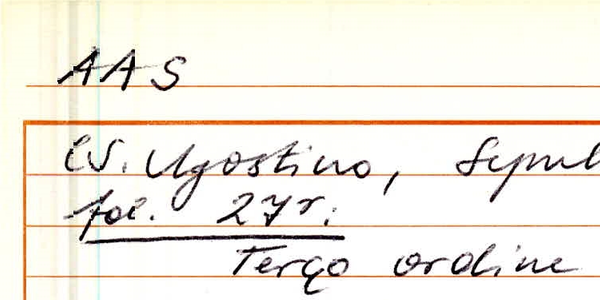 AAS
(S. Agostino, Sepul
fol. 27r.
Tergo ordine